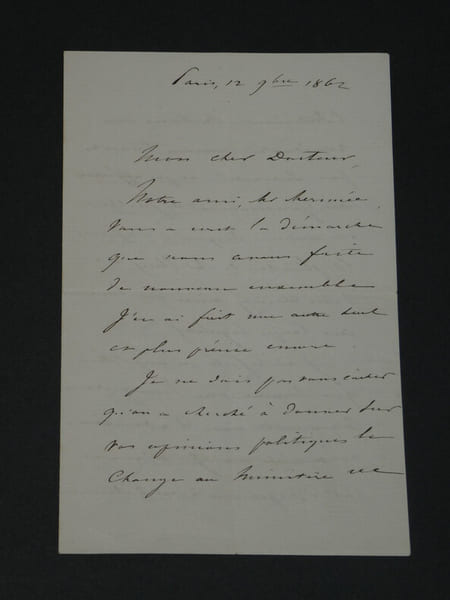 Paris, 12 9bre 1862
Mon cher Docteur,
Notre ami, Mr
vous a écrit la démarche
que nous avons faite
de nouveau ensemble
J'en ai fait une autre seul
et plus précise encore
Je ne dois pas vous cacher
qu'on a cherché à donner sur
vos opinions politiques le
change au Ministère